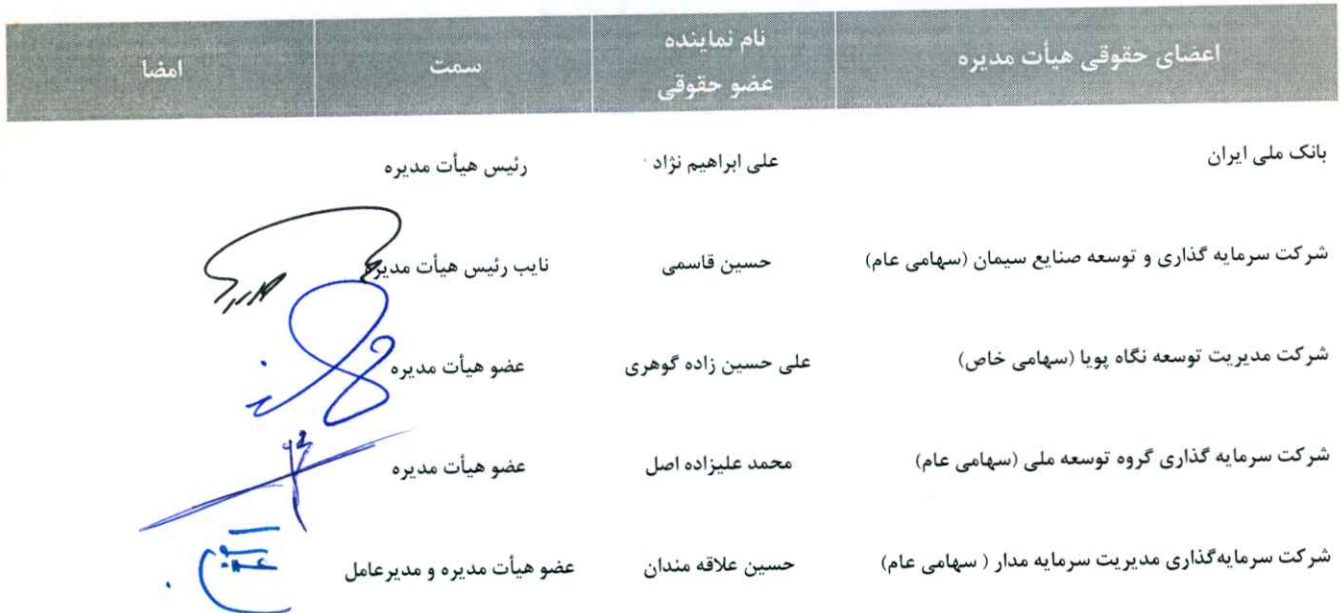 اعضای حقوقی هیأت مدیره
نام نماینده
عضو حقوقی
سمت
امضا
بانک ملی ایران
علی ابراهیم نژاد
رئیس هیأت مدیره
شرکت سرمایه گذاری و توسعه صنایع سیمان (سهامی عام)
حسین قاسمی
نایب رئیس هیأت مدیره
شرکت مدیریت توسعه نگاه پویا (سهامی خاص)
علی حسین زاده گوهری
عضو هیأت مدیره
شرکت سرمایه گذاری گروه توسعه ملی (سهامی عام)
محمد علیزاده اصل
عضو هیأت مدیره
شرکت سرمایه‌گذاری مدیریت سرمایه مدار ( سهامی عام)
حسین علاقه مندان
عضو هیأت مدیره و مدیرعامل